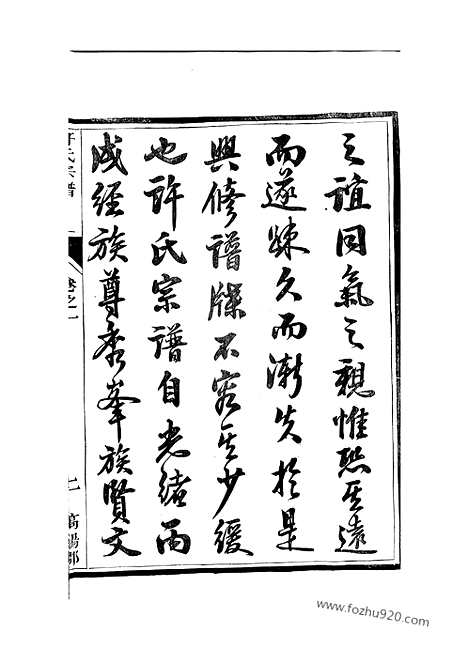 之誼同氣之親惟恐其遠
而遂踈久而漸失於是
興修譜牒不容其少緩
也許氏宗譜自光緒丙
戌經族尊秀峯族賢文
許氏宗譜
卷之一
七
高陽郡
www.fozhu920.com